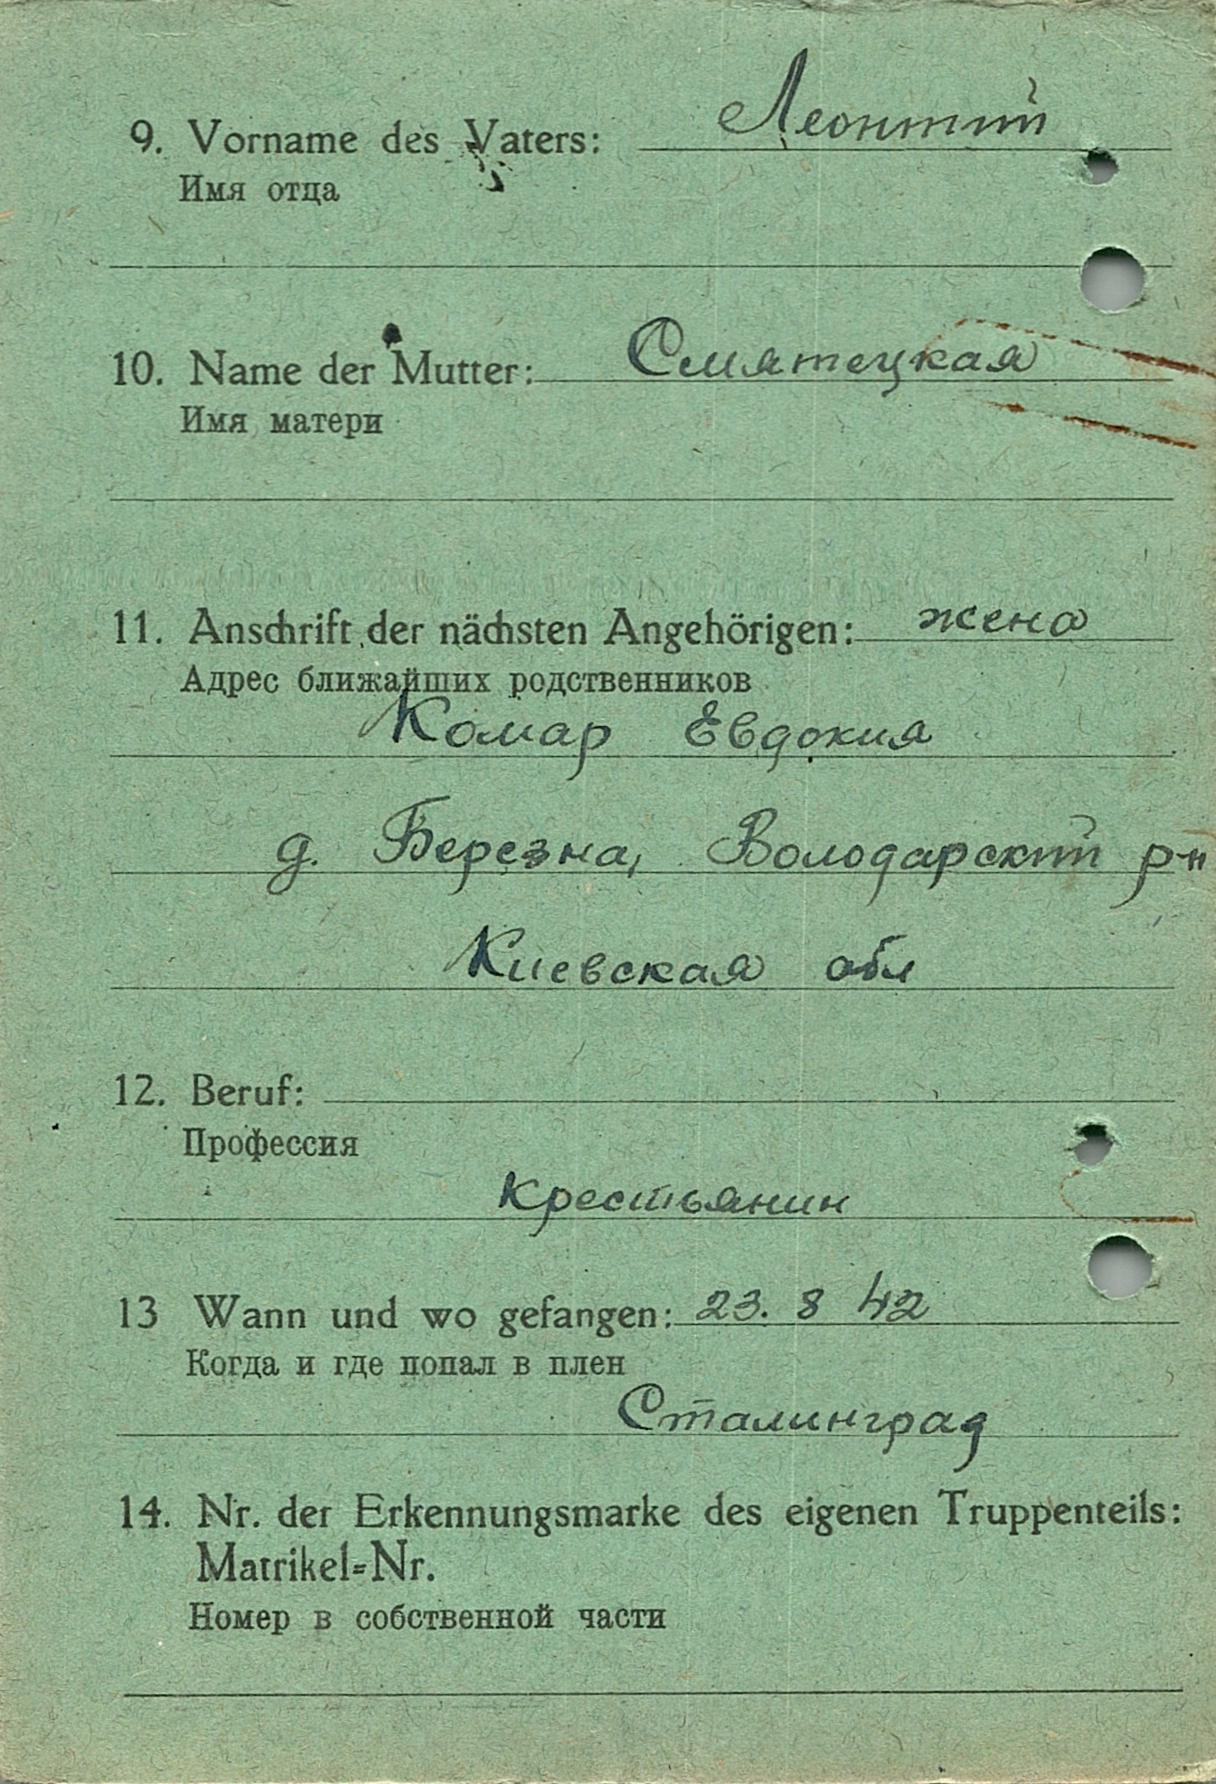 9. Vorname des Vaters: Леонтий
Имя отца
10. Name der Mutter: Смятецкая
Имя матери
11. Anschrift der nächsten Angehörigen: жена
Адрес ближайших родственников
Комар Евдокия
д. Березна, Володарский р-н
Киевская обл
12. Beruf:
Профессия
крестьянин
13 Wann und wo gefangen: 23. 8 42
Когда и где попал в плен
Сталинград
14. Nr. der Erkennungsmarke des eigenen Truppenteils:
Matrikel=Nr.
Номер в собственной части